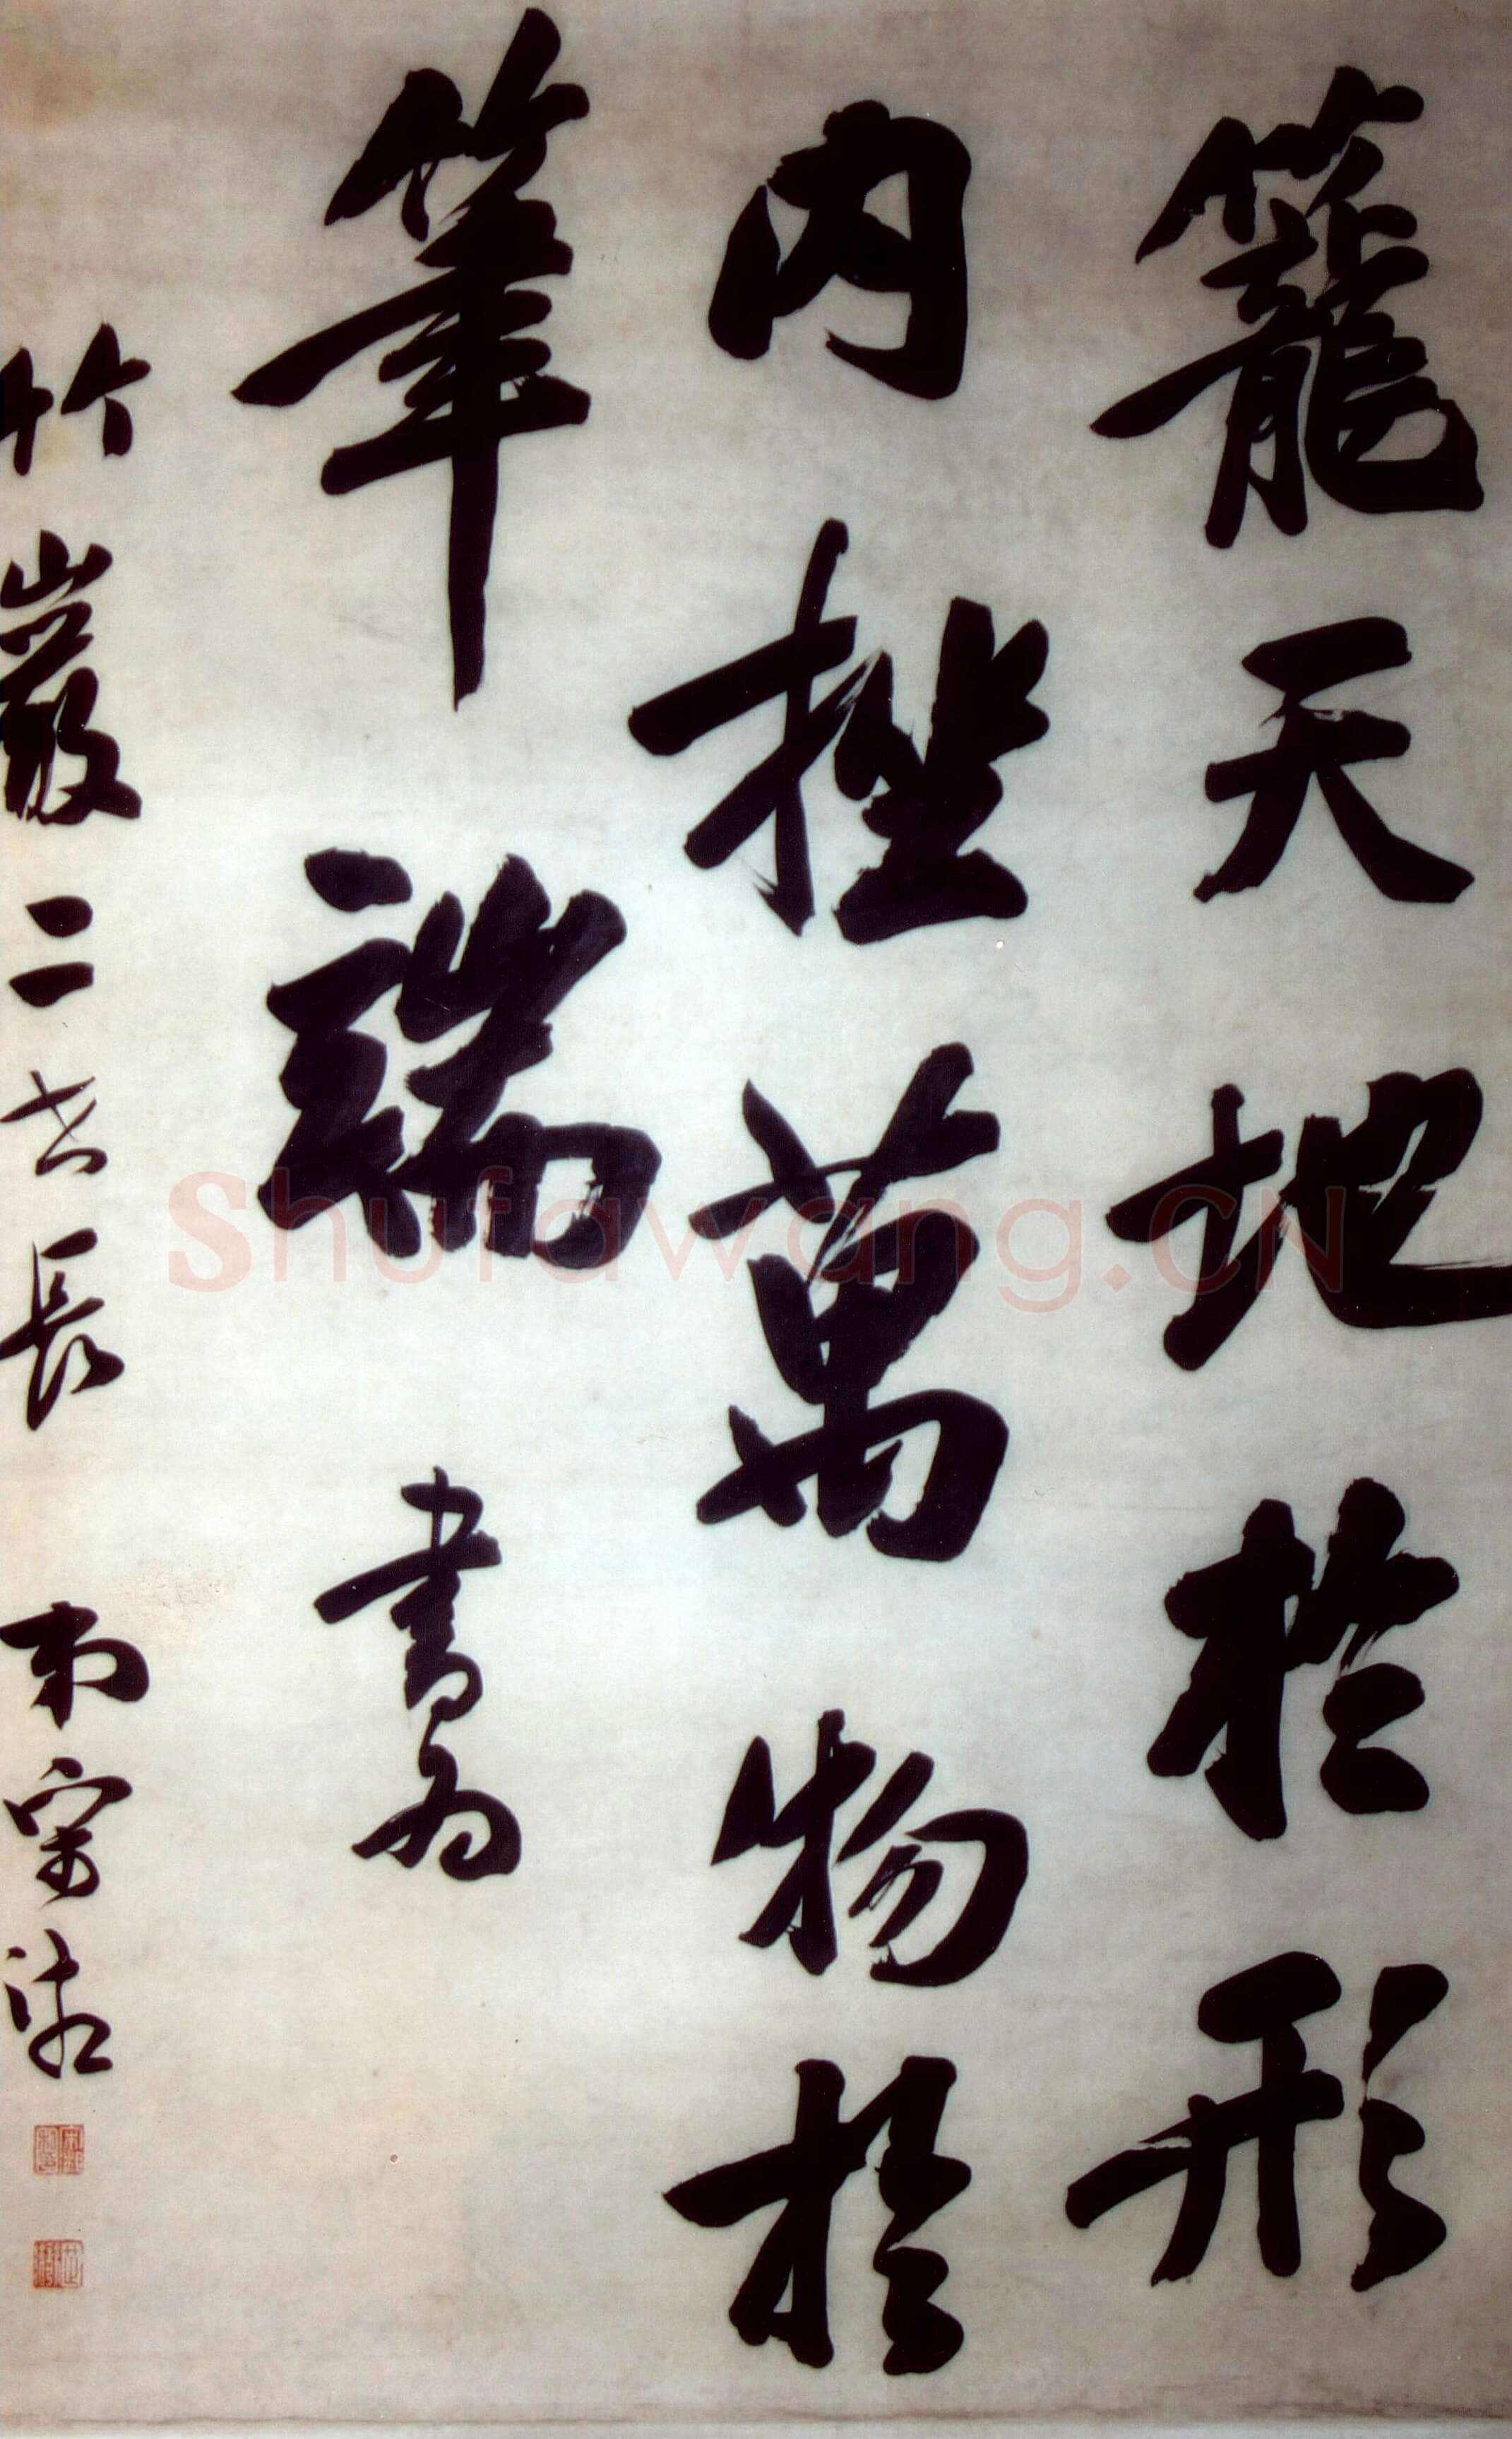 籠天地於形
内挫萬物於
筆端 書為
竹巖二老長 弟宋湘
Shufawang.CN